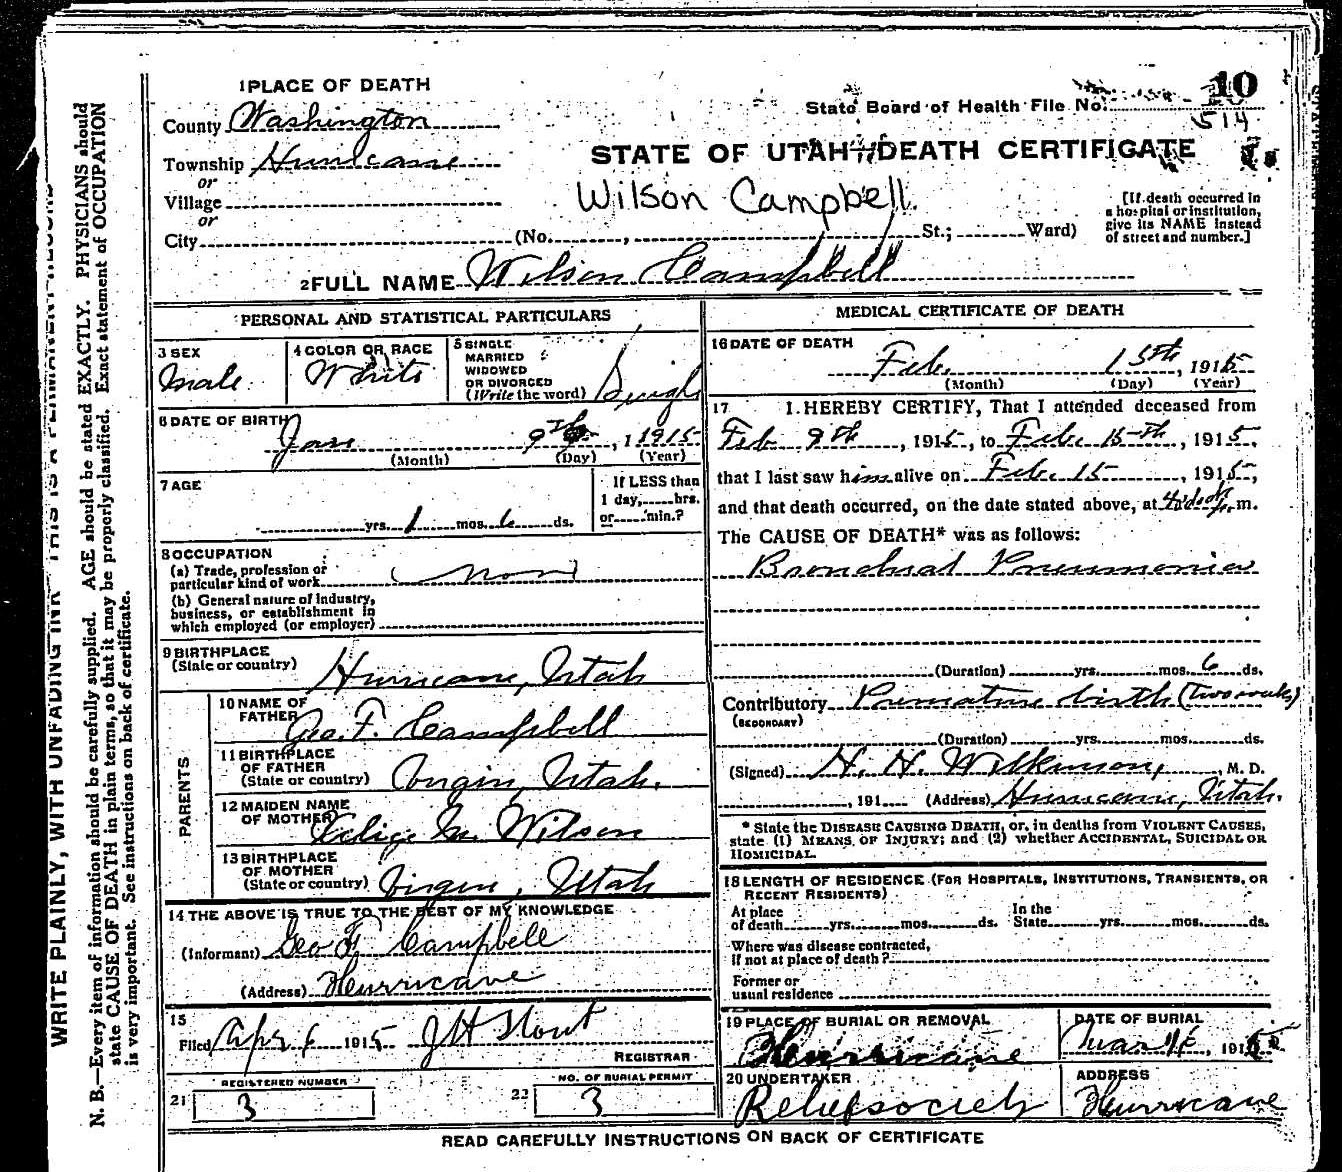 1 PLACE OF DEATH
County Washington
Township Hurricane
or
Village
or
City (No. , St.; Ward)
State Board of Health File No. 10
514
STATE OF UTAH DEATH CERTIFICATE
Wilson Campbell
[If death occurred in
a hospital or institution,
give its NAME instead
of street and number.]
2 FULL NAME Wilson Campbell
PERSONAL AND STATISTICAL PARTICULARS
3 SEX
Male
4 COLOR OR RACE
White
5 SINGLE
MARRIED
WIDOWED
OR DIVORCED
(Write the word) Single
6 DATE OF BIRTH
Jan 9th, 1915
(Month) (Day) (Year)
7 AGE
yrs. 1 mos. 6 ds.
If LESS than
1 day, hrs.
or min.?
8 OCCUPATION
(a) Trade, profession or
particular kind of work
(b) General nature of industry,
business, or establishment in
which employed (or employer)
9 BIRTHPLACE
(State or country) Hurricane, Utah
PARENTS
10 NAME OF
FATHER Geo. F. Campbell
11 BIRTHPLACE
OF FATHER
(State or country) Virgin, Utah.
12 MAIDEN NAME
OF MOTHER Wilson
13 BIRTHPLACE
OF MOTHER
(State or country) Virgin, Utah
14 THE ABOVE IS TRUE TO THE BEST OF MY KNOWLEDGE
(Informant) Geo F Campbell
(Address) Hurricane
15
Filed Apr 6 1915 J H Stout
REGISTRAR
REGISTERED NUMBER
21 3
NO. OF BURIAL PERMIT
22 3
MEDICAL CERTIFICATE OF DEATH
16 DATE OF DEATH
Feb. 15th, 1915
(Month) (Day) (Year)
17 I HEREBY CERTIFY, That I attended deceased from
Feb 9th, 1915, to Feb. 15th, 1915,
that I last saw him alive on Feb. 15, 1915,
and that death occurred, on the date stated above, at m.
The CAUSE OF DEATH* was as follows:
Bronchial Pneumonia
(Duration) yrs. mos. 6 ds.
Contributory Premature birth (two weeks)
(SECONDARY)
(Duration) yrs. mos. ds.
(Signed) H. H. Wilkinson, M. D.
, 191 (Address) Hurricane, Utah.
* State the DISEASE CAUSING DEATH, or, in deaths from VIOLENT CAUSES,
state (1) MEANS OF INJURY; and (2) whether ACCIDENTAL, SUICIDAL OR
HOMICIDAL.
18 LENGTH OF RESIDENCE (FOR HOSPITALS, INSTITUTIONS, TRANSIENTS, OR
RECENT RESIDENTS)
At place
of death yrs. mos. ds.
In the
State yrs. mos. ds.
Where was disease contracted,
if not at place of death?
Former or
usual residence
19 PLACE OF BURIAL OR REMOVAL
Hurricane
DATE OF BURIAL
, 1915
20 UNDERTAKER
Relief society
ADDRESS
Hurricane
READ CAREFULLY INSTRUCTIONS ON BACK OF CERTIFICATE
WRITE PLAINLY, WITH UNFADING INK THIS IS A PERMANENT RECORD
N. B.—Every item of information should be carefully supplied. AGE should be stated EXACTLY. PHYSICIANS should
state CAUSE OF DEATH in plain terms, so that it may be properly classified. Exact statement of OCCUPATION
is very important. See instructions on back of certificate.